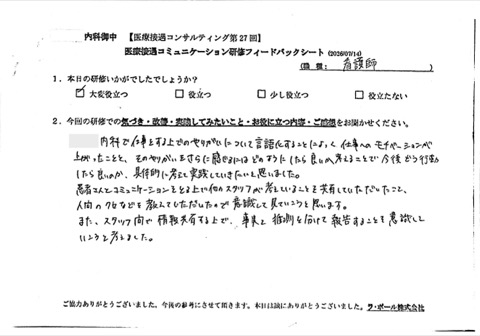 内科御中 【医療接遇コンサルティング第27回】
医療接遇コミュニケーション研修フィードバックシート (2026/07/14)
(職種: 看護師 )
1. 本日の研修いかがでしたでしょうか?
☑ 大変役立つ □ 役立つ □ 少し役立つ □ 役立たない
2. 今回の研修での気づき・改善・実践してみたいこと・お役に立つ内容・ご感想をお聞かせください。
内科で仕事をする上でのやりがいについて言語化することによって、仕事へのモチベーションが
上がったことと、そのやりがいをさらに感じるにはどのようにしたら良いか、考えることで今後どう行動
したら良いのか、具体的に考えて実践していきたいと思いました。
患者さんとコミュニケーションをとる上で他のスタッフが考えていることを共有していただいたこと、
人間のクセなどを教えていただいたので意識して見ていこうと思います。
また、スタッフ間で情報共有する上で、事実と推測を分けて報告することを意識して
いこうと考えました。
ご協力ありがとうございました。今後の参考にさせて頂きます。本日は誠にありがとうございました。 ラ・ポール株式会社